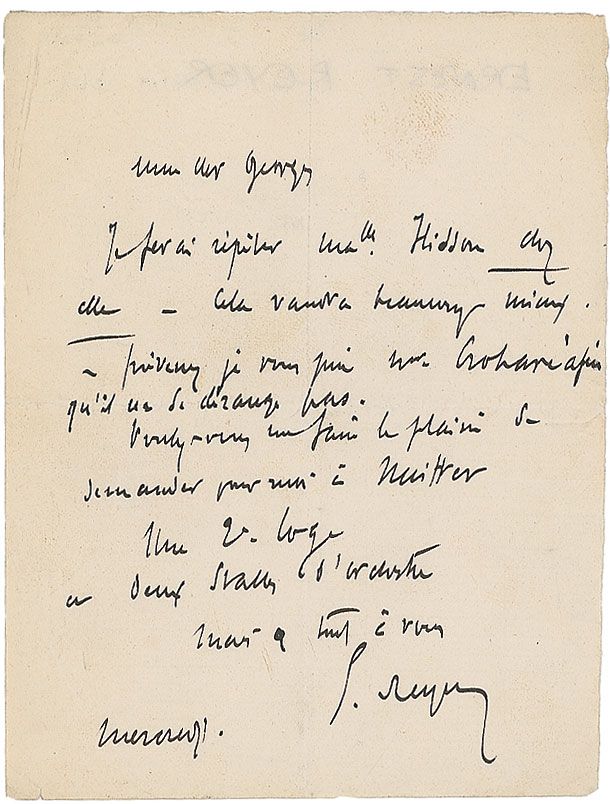 mon cher Georges
Je ferai répéter Mad^lle. Hisson chez
elle – cela vaudra beaucoup mieux.
– prévenez je vous prie
qu'il ne se dérange pas.
Voulez-vous me faire le plaisir de
demander pour moi à Nuitter
Une 2e. loge
et Deux Stalles d'orchestre
tout à vous
E. Reyer
Mercredi.